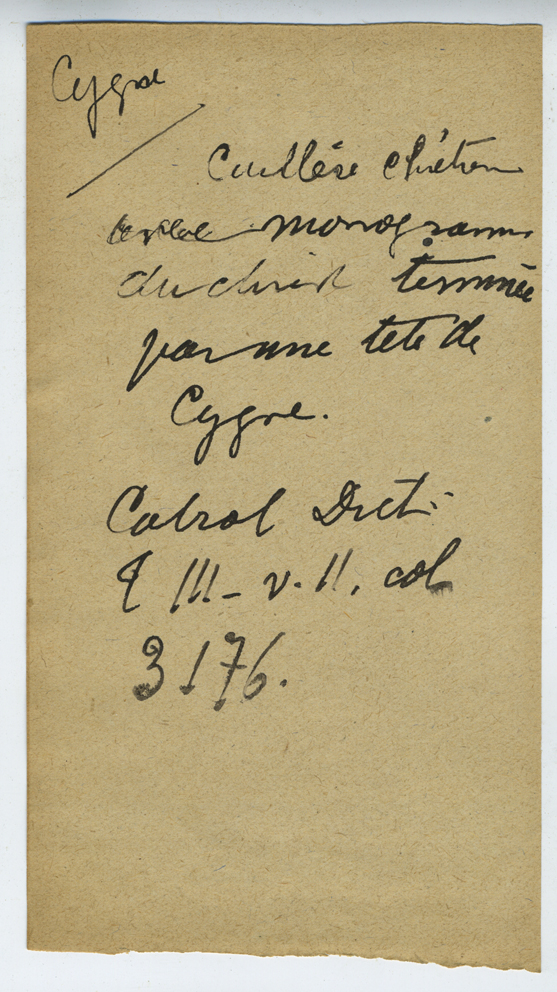 Cygne
Cuillère chrétien
monogramme
du christ terminée
par une tête de
Cygne.
Cabrol Dict:
T III - v. II, col
3176.